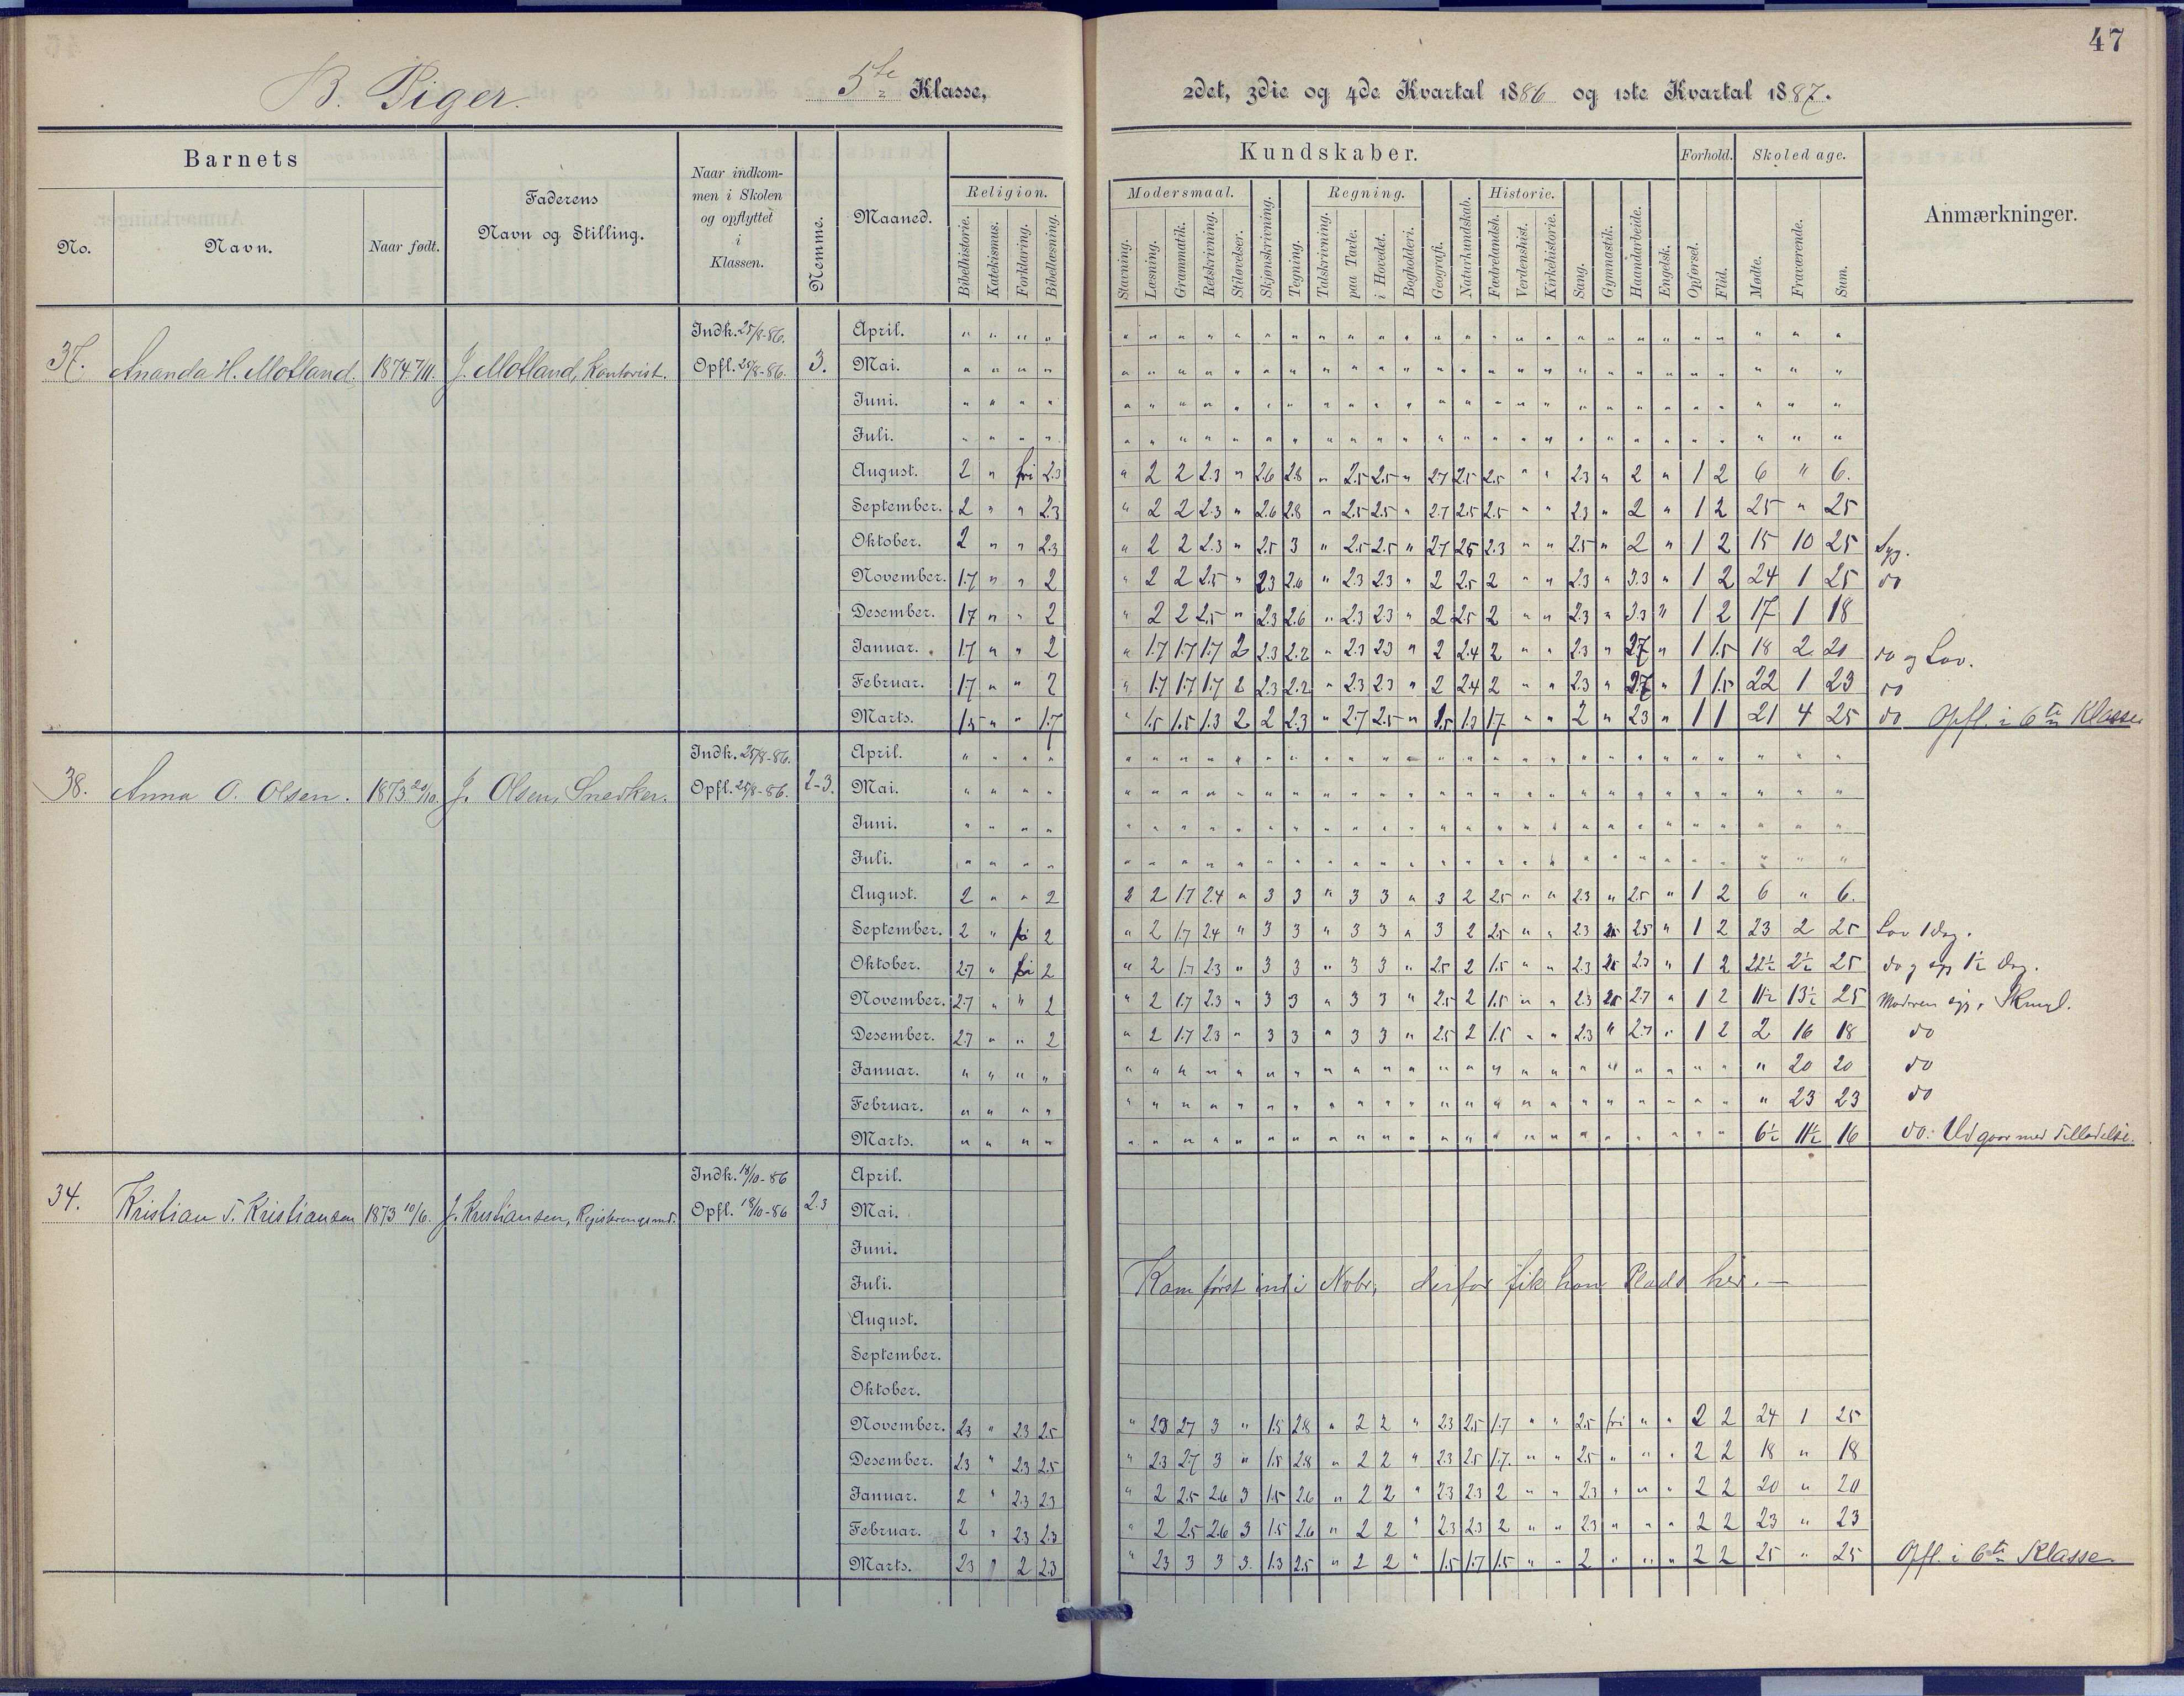 47
B. Piger. 5te Klasse, 2det, 3die og 4de Kvartal 1886 og 1ste Kvartal 1887.
Barnets
No.
Navn.
Naar født.
Faderens
Navn og Stilling.
Naar indkom-
men i Skolen
og opflyttet
i
Klassen.
Nemme.
Maaned.
Religion.
Bibelhistorie. Katekismus. Forklaring. Bibellæsning.
Kundskaber.
Modersmaal.
Stavning. Læsning. Grammatik. Retskrivning. Stiløvelser.
Skjønskrivning. Tegning.
Regning.
Talskrivning. paa Tavle. i Hovedet. Bogholderi.
Geografi. Naturkundskab.
Historie.
Fædrelandsh. Verdenshist. Kirkehistorie.
Sang. Gymnastik. Haandarbeide. Engelsk.
Forhold.
Opførsel. Flid.
Skoledage.
Mødte. Fraværende. Sum.
Anmærkninger.
37. Ananda H. Motland. 1874 7/11. J. Motland, Kontorist. Indk. 25/8-86. Opfl. 25/8-86. 3.
April. " " " " " " " " " " " " " " " " " " " " " " " " " " " " "
Mai. " " " " " " " " " " " " " " " " " " " " " " " " " " " " "
Juni. " " " " " " " " " " " " " " " " " " " " " " " " " " " " "
Juli. " " " " " " " " " " " " " " " " " " " " " " " " " " " " "
August. 2 " fri 2.3 " 2 2 2.3 " 2.6 2.8 " 2.5 2.5 " 2.7 2.5 2.5 " " 2.3 " 2 " 1 2 6 " 6.
September. 2 " " 2.3 " 2 2 2.3 " 2.6 2.8 " 2.5 2.5 " 2.7 2.5 2.5 " " 2.3 " 2 " 1 2 25 " 25
Oktober. 2 " " 2.3 " 2 2 2.3 " 2.5 3 " 2.5 2.5 " 2.7 2.5 2.3 " " 2.5 " 2 " 1 2 15 10 25 Syg.
November. 1.7 " " 2 " 2 2 2.5 " 2.3 2.6 " 2.3 2.3 " 2 2.5 2 " " 2.3 " 3.3 " 1 2 24 1 25 do
Desember. 1.7 " " 2 " 2 2 2.5 " 2.3 2.6 " 2.3 2.3 " 2 2.5 2 " " 2.3 " 3.3 " 1 2 17 1 18
Januar. 1.7 " " 2 " 1.7 1.7 1.7 2 2.3 2.2 " 2.3 2.3 " 2 2.4 2 " " 2.3 " 2.7 " 1 1.5 18 2 20 do og Lov.
Februar. 1.7 " " 2 " 1.7 1.7 1.7 2 2.3 2.2 " 2.3 2.3 " 2 2.4 2 " " 2.3 " 2.7 " 1 1.5 22 1 23 do
Marts. 1.5 " " 1.7 " 1.5 1.5 1.3 2 2 2.3 " 2.7 2.5 " 1.5 1.3 1.7 " " 2 " 2.3 " 1 1 21 4 25 do Opfl. i 6te Klasse
38. Anna O. Olsen. 1873 20/10. J. Olsen, Snedker. Indk. 25/8-86. Opfl. 25/8-86. 2-3.
April. " " " " " " " " " " " " " " " " " " " " " " " " " " " " "
Mai. " " " " " " " " " " " " " " " " " " " " " " " " " " " " "
Juni. " " " " " " " " " " " " " " " " " " " " " " " " " " " " "
Juli. " " " " " " " " " " " " " " " " " " " " " " " " " " " " "
August. 2 " " 2 2 2 1.7 2.4 " 3 3 " 3 3 " 3 2 2.5 " " 2.3 " 2.5 " 1 2 6 " 6.
September. 2 " 2 " 2 1.7 2.4 " 3 3 " 3 3 " 3 2 2.5 " " 2.3 2.5 " 1 2 23 2 25 Lov 1 dag.
Oktober. 2.7 " 2 " 2 1.7 2.3 " 3 3 " 3 3 " 2.5 2 1.5 " " 2.3 2.3 " 1 2 22½ 2½ 25 do og syg 1½ dag.
November. 2.7 " " 2 " 2 1.7 2.3 " 3 3 " 3 3 " 2.5 2 1.5 " " 2.3 2.7 " 1 2 11½ 13½ 25 Modren syg,
Desember. 2.7 " " 2 " 2 1.7 2.3 " 3 3 " 3 3 " 2.5 2 1.5 " " 2.3 " 2.7 " 1 2 2 16 18 do
Januar. " " " " " " " " " " " " " " " " " " " " " " " " " " " 20 20 do
Februar. " " " " " " " " " " " " " " " " " " " " " " " " " " " 23 23 do
Marts. " " " " " " " " " " " " " " " " " " " " " " " " " " 6½ 11½ 16 do: Udgaar med Tilladelse.
34. Kristian T. Kristiansen 1873 10/6. J. Kristiansen, Indk. 18/10-86 Opfl. 18/10-86 2.3
April.
Mai.
Juni.
Juli. Kom først ind i Novbr, derfor fik han Plads her. —
August.
September.
Oktober.
November. 2.3 " 2.3 2.5 " 2.3 2.7 3 " 1.5 2.8 " 2 2 " 2.3 2.5 1.7 " " 2.5 fri " " 2 2 24 1 25
Desember. 2.3 " 2.3 2.5 " 2.3 2.7 3 " 1.5 2.8 " 2 2 " 2.3 2.5 1.7. " " 2.5 " " " 2 2 18 " 18
Januar. 2 " 2.3 2.3 " 2 2.5 2.6 3 1.5 2.6 " 2 2 " 2.3 2.3 2 " " 2.3 " " " 2 2 20 " 20
Februar. 2 " 2.3 2.3 " 2 2.5 2.6 3 1.5 2.6 " 2 2 " 2.3 2.3 2 " " 2.3 " " " 2 2 23 " 23
Marts. 2.3 " 2 2.3 " 2.3 3 3 3. 1.3 2.5 " 2 2 " 1.5 1.7 1.5 " " 2 " " " 2 2 25 " 25 Opfl. i 6te Klasse.